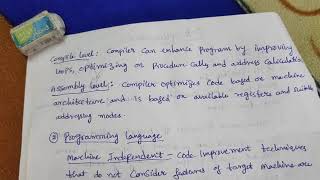 Compile level: Compiler can enhance program by improving
loops, optimizing on procedure calls, and address calculation
Assembly level: Compiler optimizes code based on machine
architecture and is based on available registers and suitable
addressing modes.
② Programming language
Machine Independent - Code improvement techniques
that do not consider features of target machine are